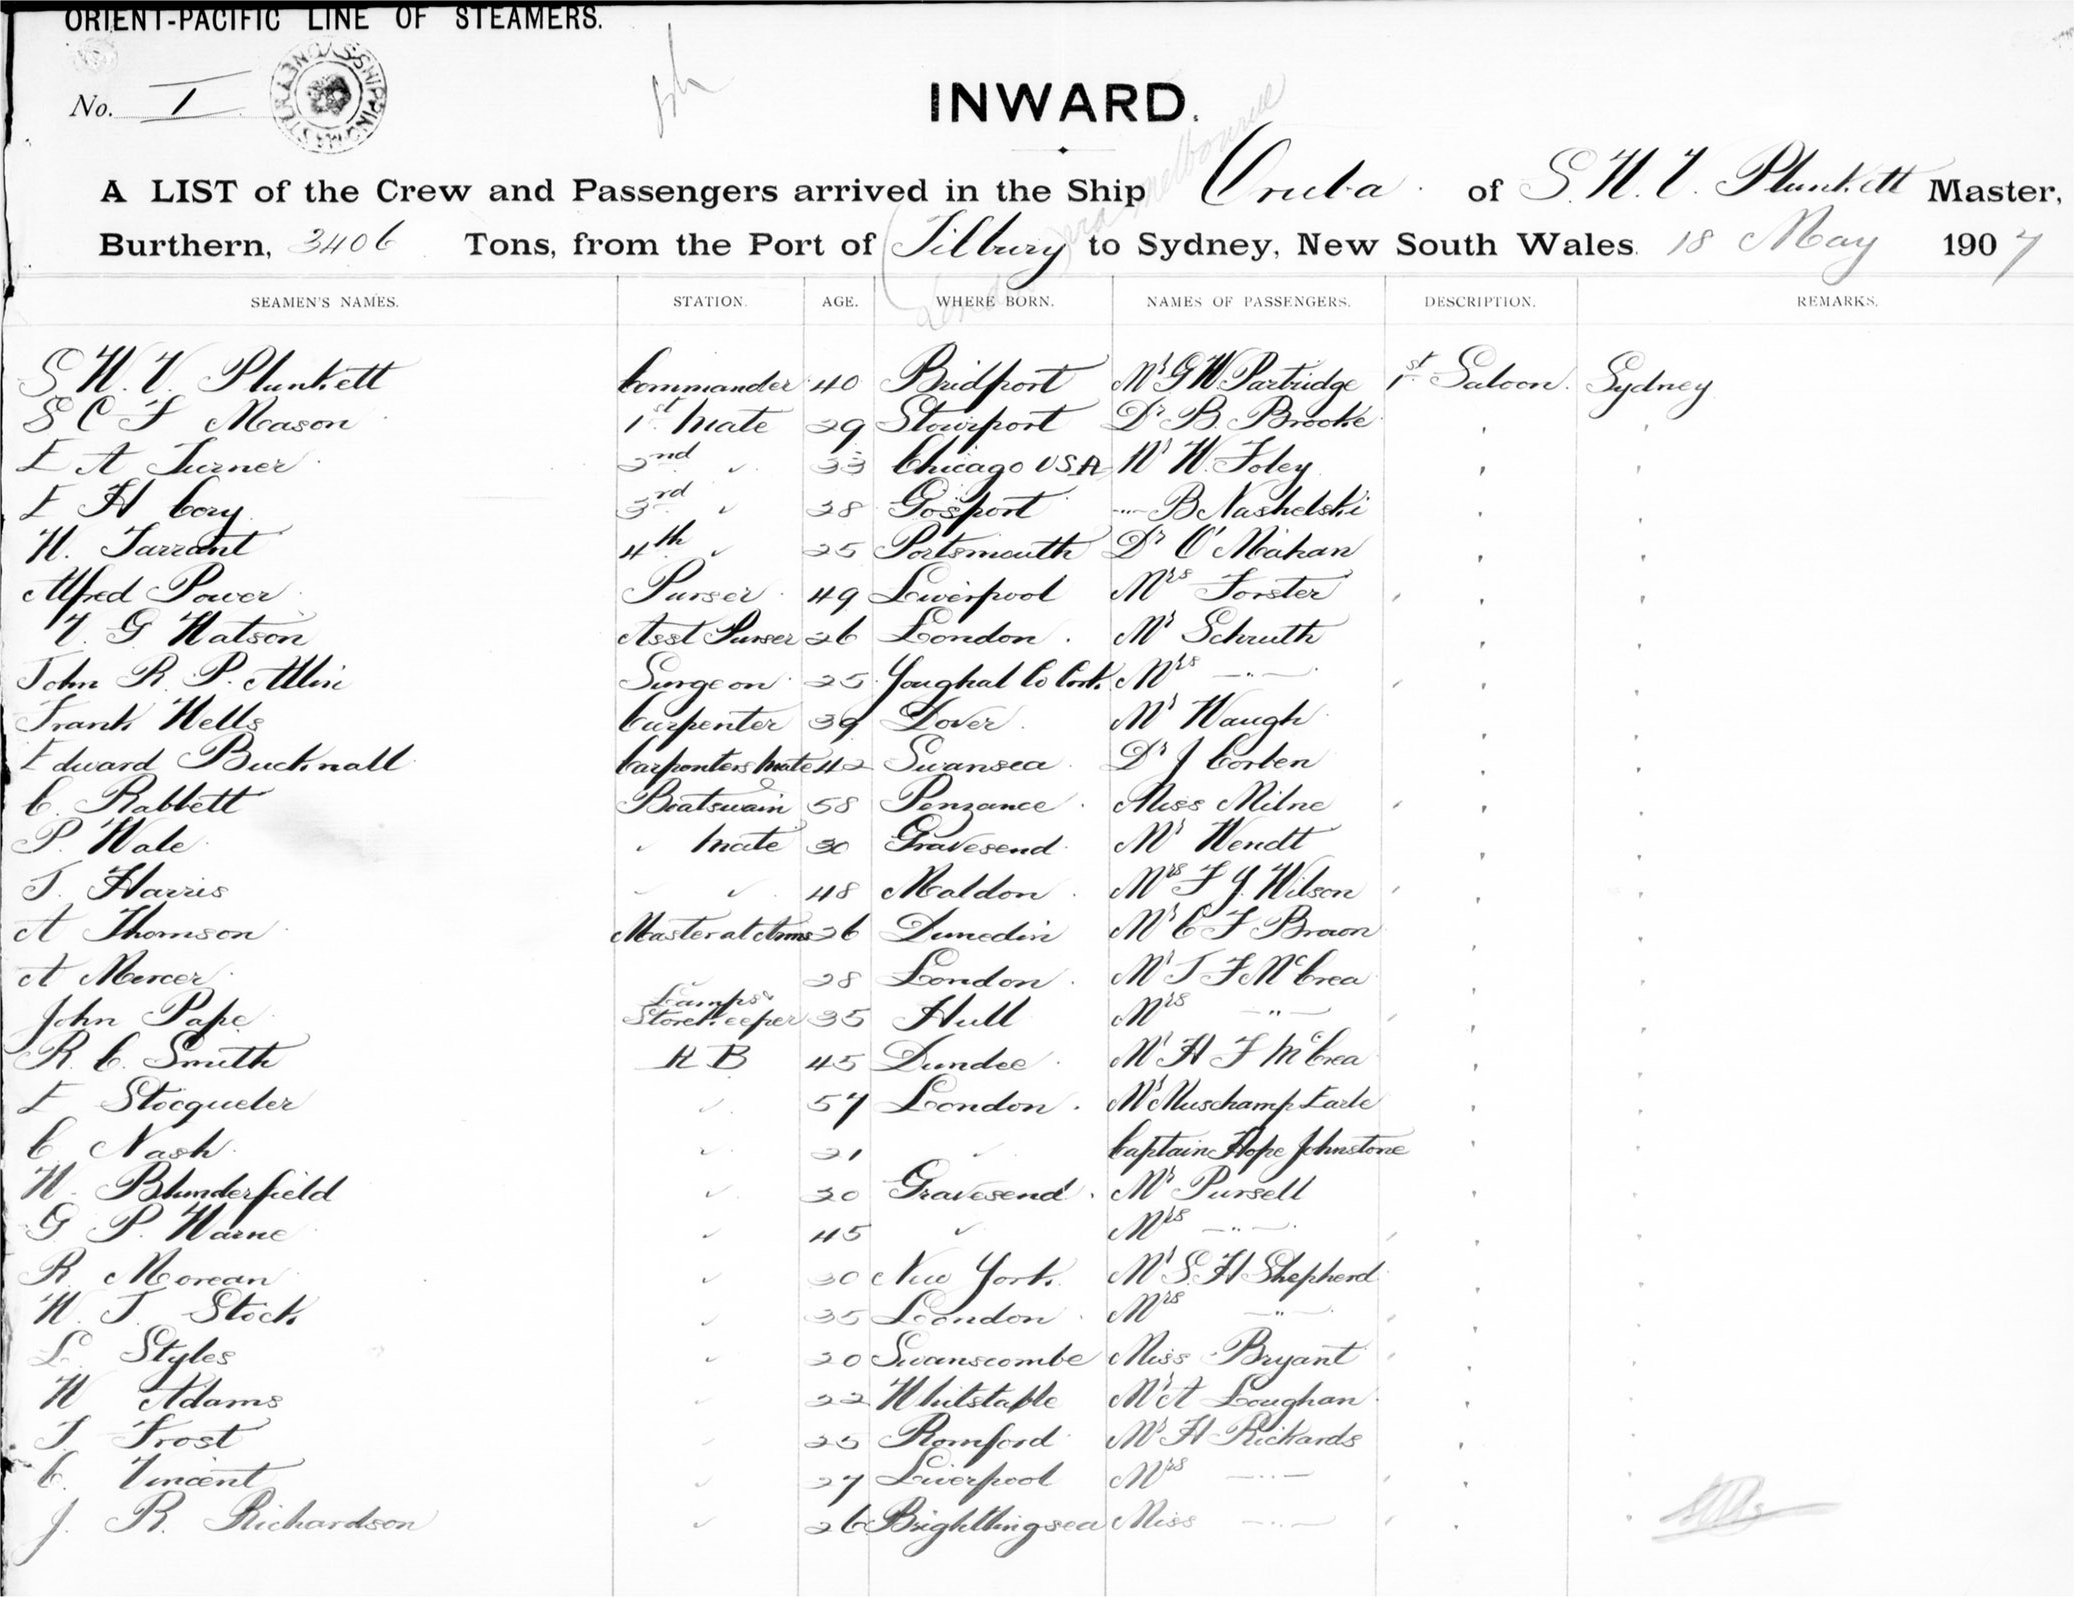 ORIENT-PACIFIC LINE OF STEAMERS.
No. I
SHIPPING MASTER SYDNEY
INWARD.
A LIST of the Crew and Passengers arrived in the Ship Oruba of S. W. V. Plunkett Master,
Burthern, 3406 Tons, from the Port of Tilbury to Sydney, New South Wales. 18 May 1907
London via Melbourne
SEAMEN'S NAMES. STATION. AGE. WHERE BORN. NAMES OF PASSENGERS. DESCRIPTION. REMARKS.
S. W. V. Plunkett Commander 40 Bridport Mr G W Partridge 1st Saloon. Sydney
S C F Mason 1st Mate 29 Stourport Dr B. Brooke
E A Turner 2nd " 33 Chicago USA Mr W. Foley
E H Cory 3rd " 28 Gosport " B Nashelski
W. Tarrant 4th " 25 Portsmouth Dr O'Mahan
Alfred Power Purser 49 Liverpool Mrs Forster
V. G Watson Asst Purser 26 London Mr Schruth
John R. P. Allin Surgeon 25 Youghal Co Cork Mrs "
Frank Wells Carpenter 39 Dover Mr Waugh
Edward Bucknall Carpenters Mate 42 Swansea Dr J Corben
C. Rabbett Boatswain 58 Penzance Miss Milne
P. Wale " Mate 30 Gravesend Mr Wendt
T. Harris " " 48 Maldon Mrs F. J. Wilson
A Thomson Master at Arms 26 Dunedin Mr C F Brown
A Mercer " 28 London Mr T F McCrea
John Pape Lamps & Storekeeper 35 Hull Mrs "
R. C. Smith A B 45 Dundee Mr H F McCrea
E Stocqueler " 57 London Mr Muschamp Earle
C. Nash " 21 " Captain Hope Johnstone
W. Blunderfield " 20 Gravesend Mr Pursell
G P. Warne " 45 " Mrs "
R Morean " 30 New York Mr S. H Shepherd
W. T. Stock " 35 London Mrs "
L. Styles " 20 Swanscombe Miss Bryant
W Adams " 22 Whitstable Mr A Loughan
T. Frost " 25 Romford Mr H Rickards
C. Vincent " 27 Liverpool Mrs "
J. R. Richardson " 26 Brightlingsea Miss "